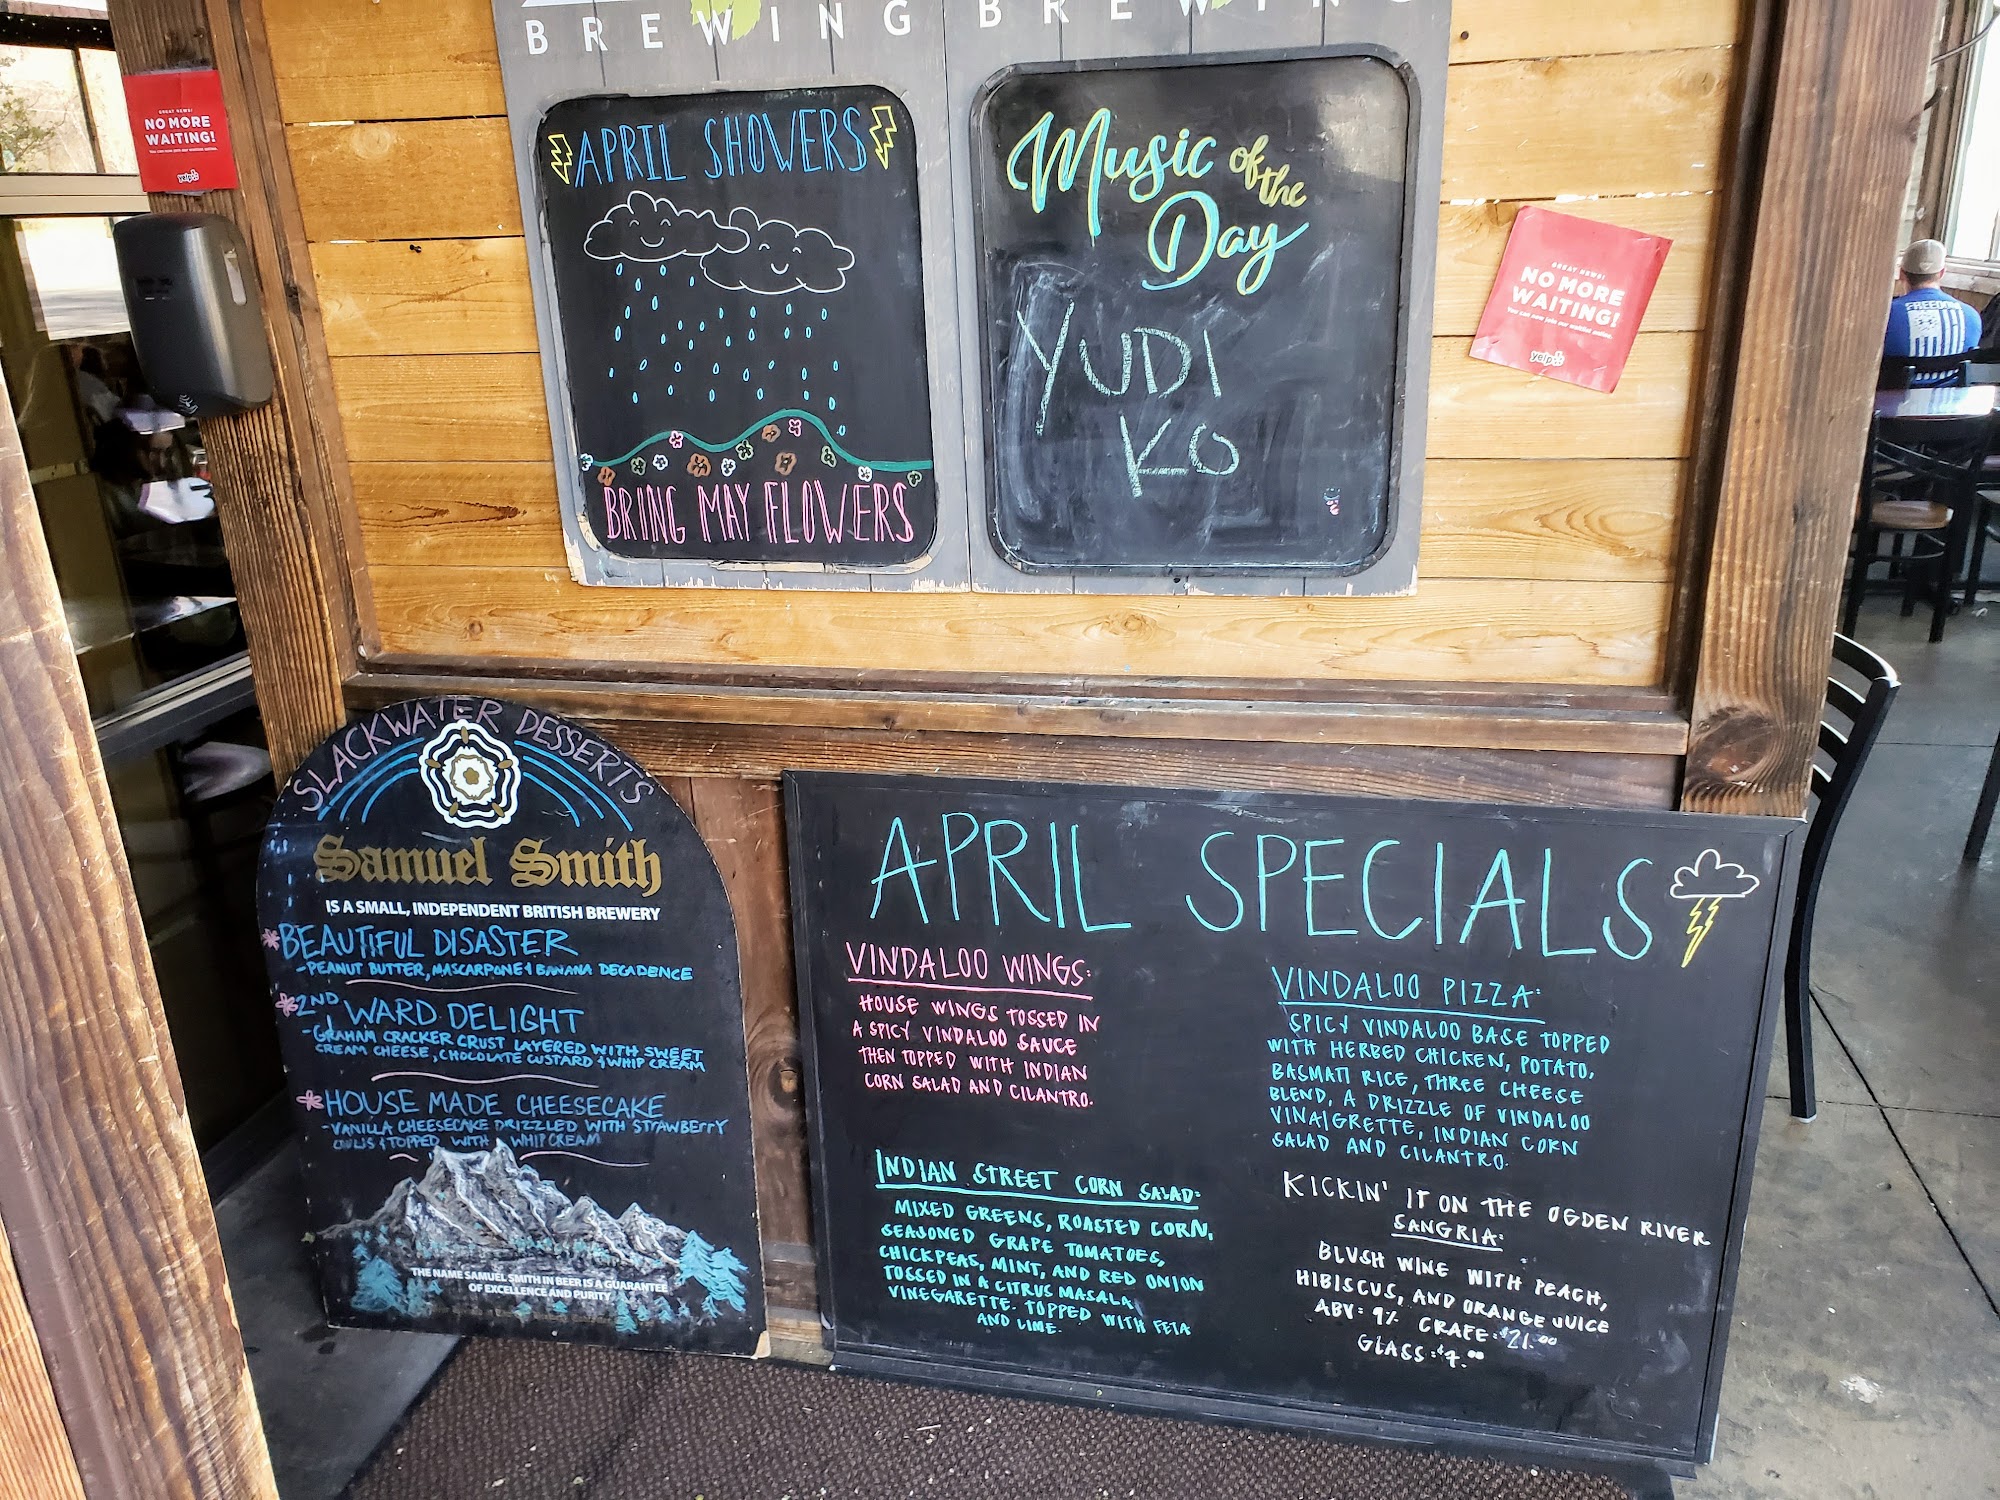 BREWING
BREWING
GREAT NEWS!
NO MORE
WAITING!
You can now join our waitlist online.
yelp
APRIL SHOWERS
BRING MAY FLOWERS
Music of the
Day
YUDI
KO
GREAT NEWS!
NO MORE
WAITING!
You can now join our waitlist online.
yelp
FREEDOM
SLACKWATER DESSERTS
Samuel Smith
IS A SMALL, INDEPENDENT BRITISH BREWERY
BEAUTIFUL DISASTER
-PEANUT BUTTER, MASCARPONE & BANANA DECADENCE
2ND WARD DELIGHT
-GRAHAM CRACKER CRUST LAYERED WITH SWEET
CREAM CHEESE, CHOCOLATE CUSTARD & WHIP CREAM
HOUSE MADE CHEESECAKE
-VANILLA CHEESECAKE DRIZZLED WITH STRAWBERRY
& TOPPED WITH WHIP CREAM
THE NAME SAMUEL SMITH IN BEER IS A GUARANTEE
OF EXCELLENCE AND PURITY
APRIL SPECIALS
VINDALOO WINGS:
HOUSE WINGS TOSSED IN
A SPICY VINDALOO SAUCE
THEN TOPPED WITH INDIAN
CORN SALAD AND CILANTRO.
INDIAN STREET CORN SALAD:
MIXED GREENS, ROASTED CORN,
SEASONED GRAPE TOMATOES,
CHICKPEAS, MINT, AND RED ONION
TOSSED IN A CITRUS MASALA
VINEGARETTE. TOPPED WITH FETA
AND LIME.
VINDALOO PIZZA:
SPICY VINDALOO BASE TOPPED
WITH HERBED CHICKEN, POTATO,
BASMATI RICE, THREE CHEESE
BLEND, A DRIZZLE OF VINDALOO
VINAIGRETTE, INDIAN CORN
SALAD AND CILANTRO.
KICKIN' IT ON THE OGDEN RIVER
SANGRIA:
BLUSH WINE WITH PEACH,
HIBISCUS, AND ORANGE JUICE
ABV: 9% CRAFE: $21.00
GLASS: $7.00